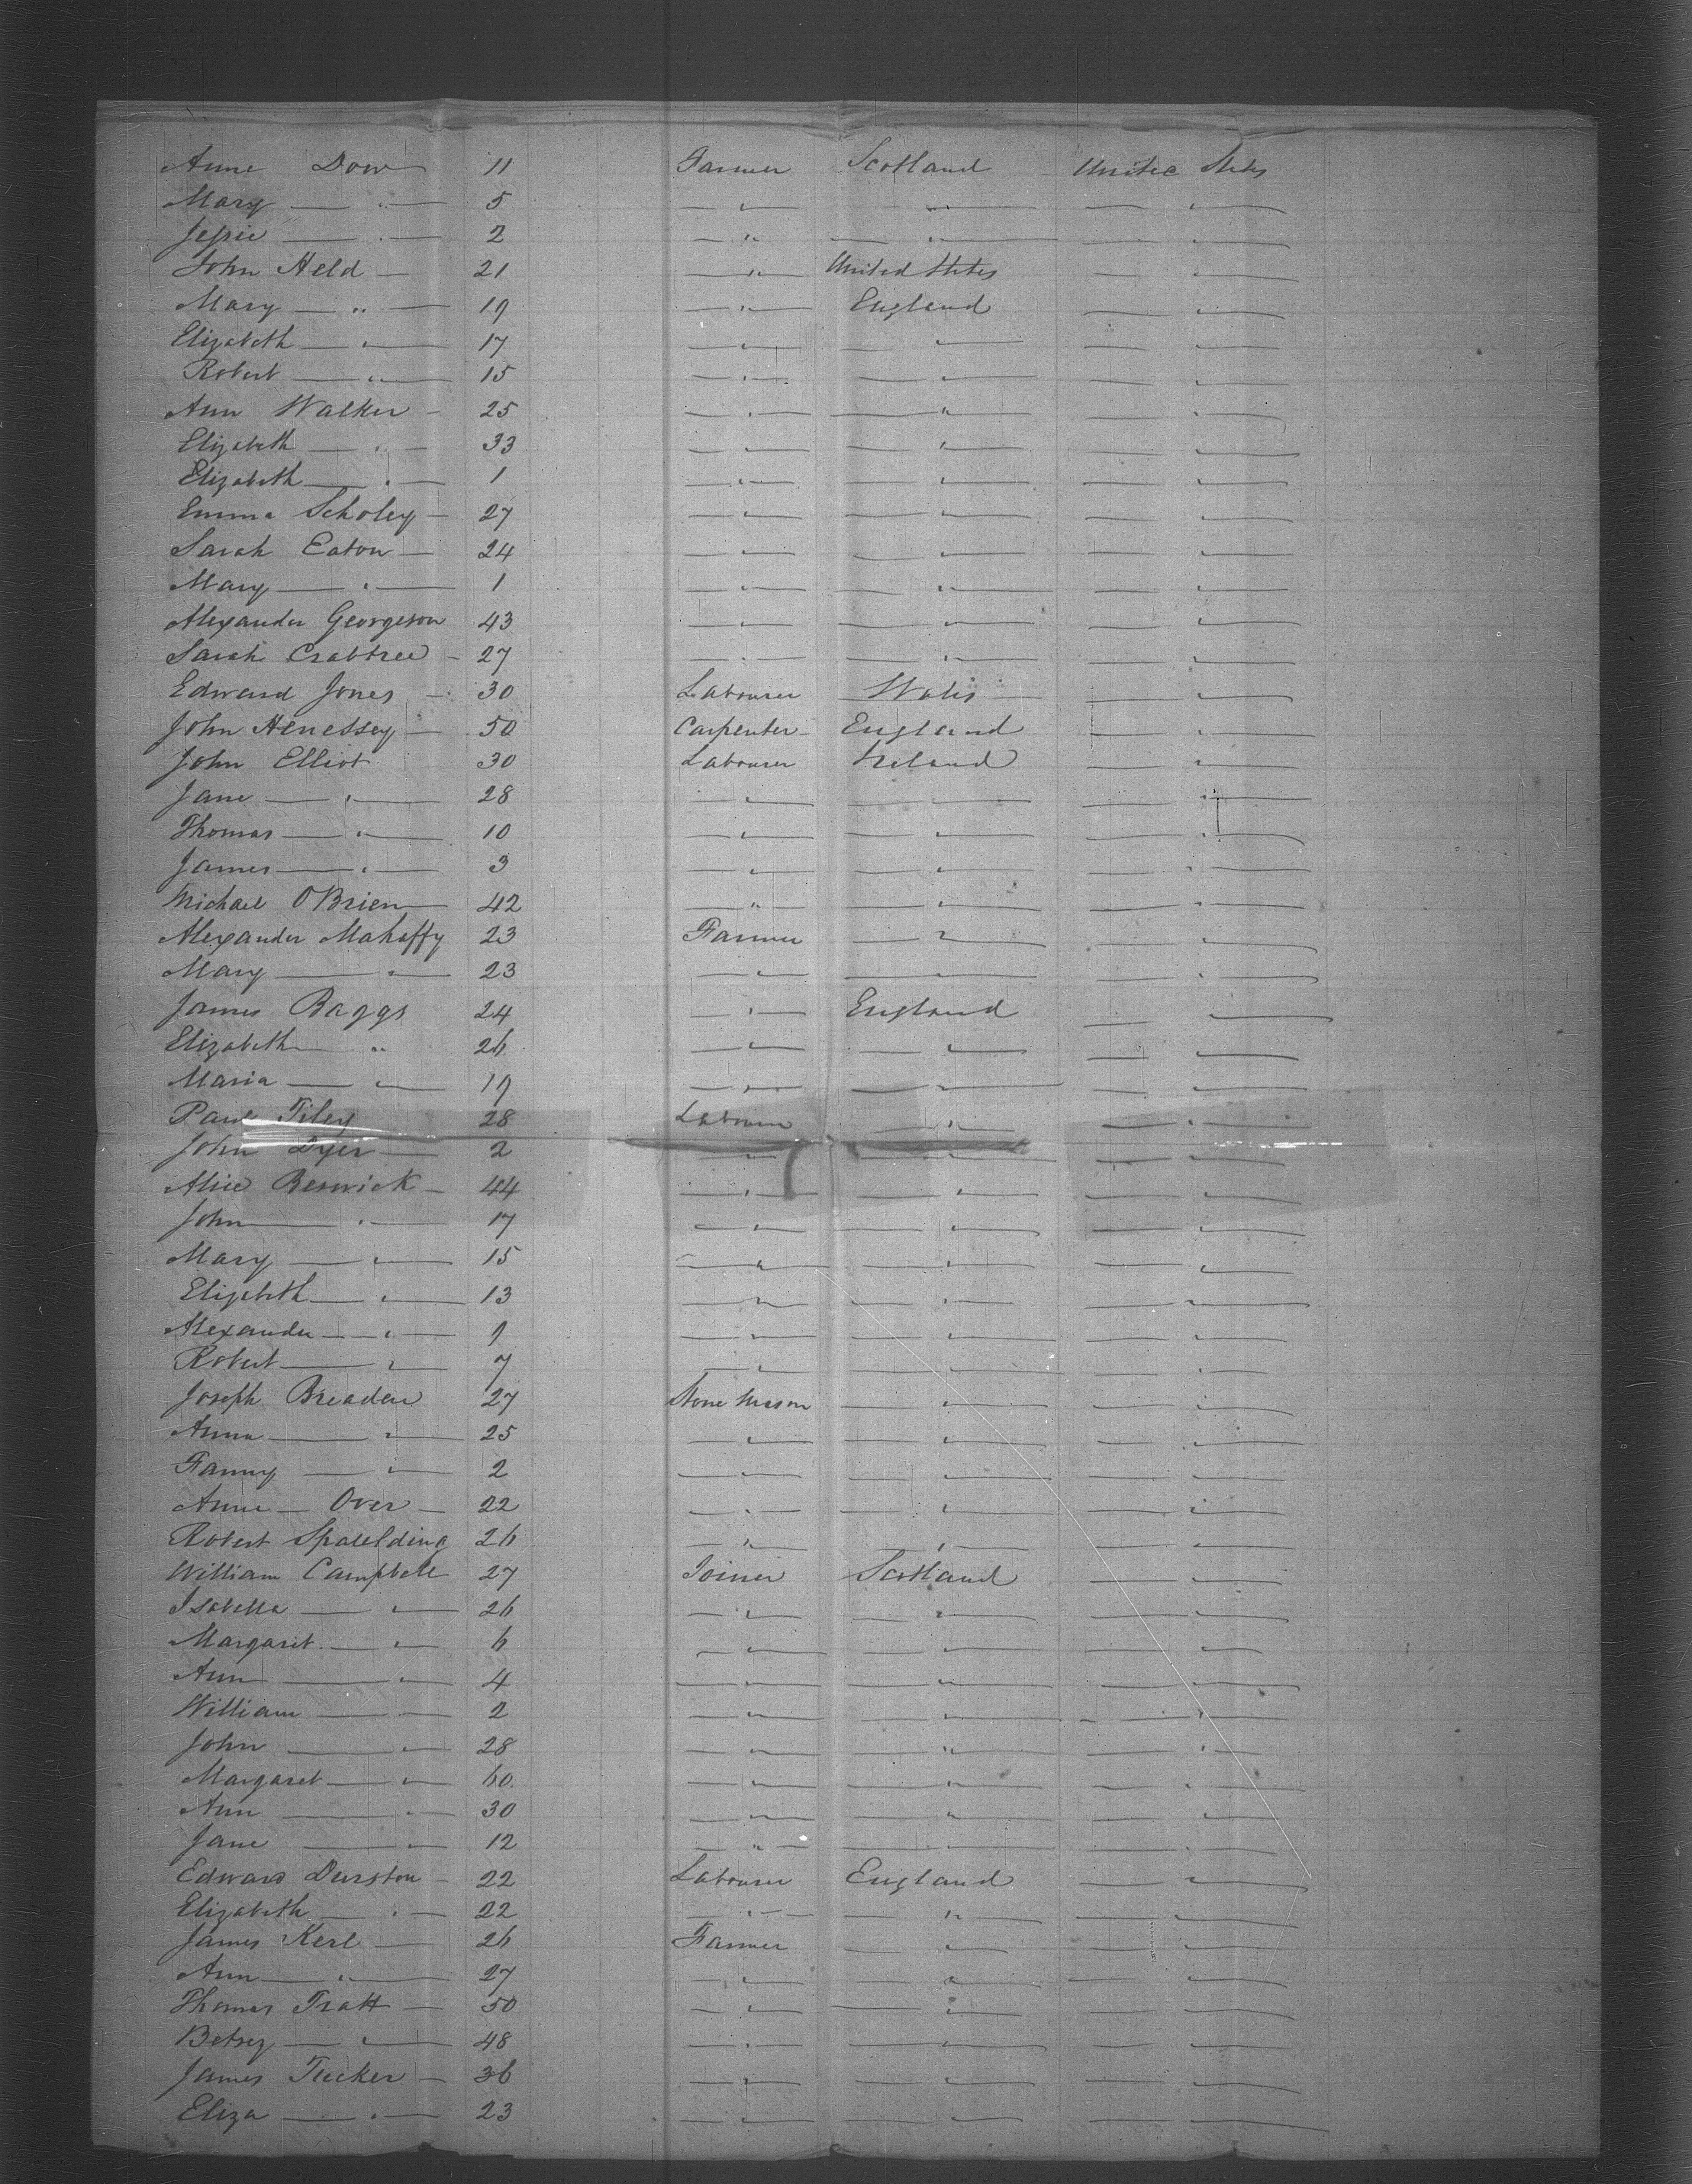 Anne Dow 11 Farmer Scotland United States
Mary — " — 5 — " — — " — — " —
Jessie — " — 2 — " — — " — — " —
John Held — 21 — " — United States — " —
Mary — " — 19 — " — England — " —
Elizabeth — " — 17 — " — — " — — " —
Robert — " — 15 — " — — " — — " —
Ann Walker — 25 — " — — " — — " —
Elizabeth — " — 33 — " — — " — — " —
Elizabeth — " — 1 — " — — " — — " —
Emma Scholey — 27 — " — — " — — " —
Sarah Eaton — 24 — " — — " — — " —
Mary — " — 1 — " — — " — — " —
Alexander Georgeson 43 — " — — " — — " —
Sarah Crabtree — 27 — " — — " — — " —
Edward Jones — 30 Labourer Wales — " —
John Henessey — 50 Carpenter — England — " —
John Elliot 30 Labourer Ireland — " —
Jane — " — 28 — " — — " — — " —
Thomas — " — 10 — " — — " — — " —
James — " — 3 — " — — " — — " —
Michael O'Brien — 42 — " — — " — — " —
Alexander Mahaffy 23 Farmer — " — — " —
Mary — " — 23 — " — — " — — " —
James Baggs 24 — " — England — " —
Elizabeth — " 26 — " — — " — — " —
Maria — " — 19 — " — — " — — " —
Paul Tiley 28 Labourer — " — — " —
John Dyer — 2 — " — — " — — " —
Alice Beswick — 44 — " — — " — — " —
John — " — 17 — " — — " — — " —
Mary — " — 15 — " — — " — — " —
Elizabeth — " — 13 — " — — " — — " —
Alexander — " — 9 — " — — " — — " —
Robert — " — 7 — " — — " — — " —
Joseph Breaden 27 Stone Mason — " — — " —
Anna — " — 25 — " — — " — — " —
Fanny — " — 2 — " — — " — — " —
Anne — Over — 22 — " — — " — — " —
Robert Spaulding 26 — " — — " — — " —
William Campbell 27 Joiner Scotland — " —
Isabella — " — 26 — " — — " — — " —
Margaret — " — 6 — " — — " — — " —
Ann — " — 4 — " — — " — — " —
William — " — 2 — " — — " — — " —
John — " — 28 — " — — " — — " —
Margaret — " — 60 — " — — " — — " —
Ann — " — 30 — " — — " — — " —
Jane — " — 12 — " — — " — — " —
Edward Durston — 22 Labourer England — " —
Elizabeth — " — 22 — " — — " — — " —
James Kerl — 26 Farmer — " — — " —
Ann — " — 27 — " — — " — — " —
Thomas Tratt — 50 — " — — " — — " —
Betsey — " — 48 — " — — " — — " —
James Tucker — 36 — " — — " — — " —
Eliza — " — 23 — " — — " — — " —